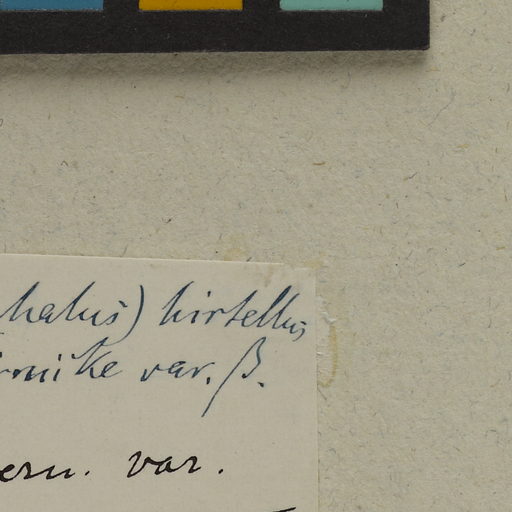 halus) hirtellus
rnike var. β.
ern. var.